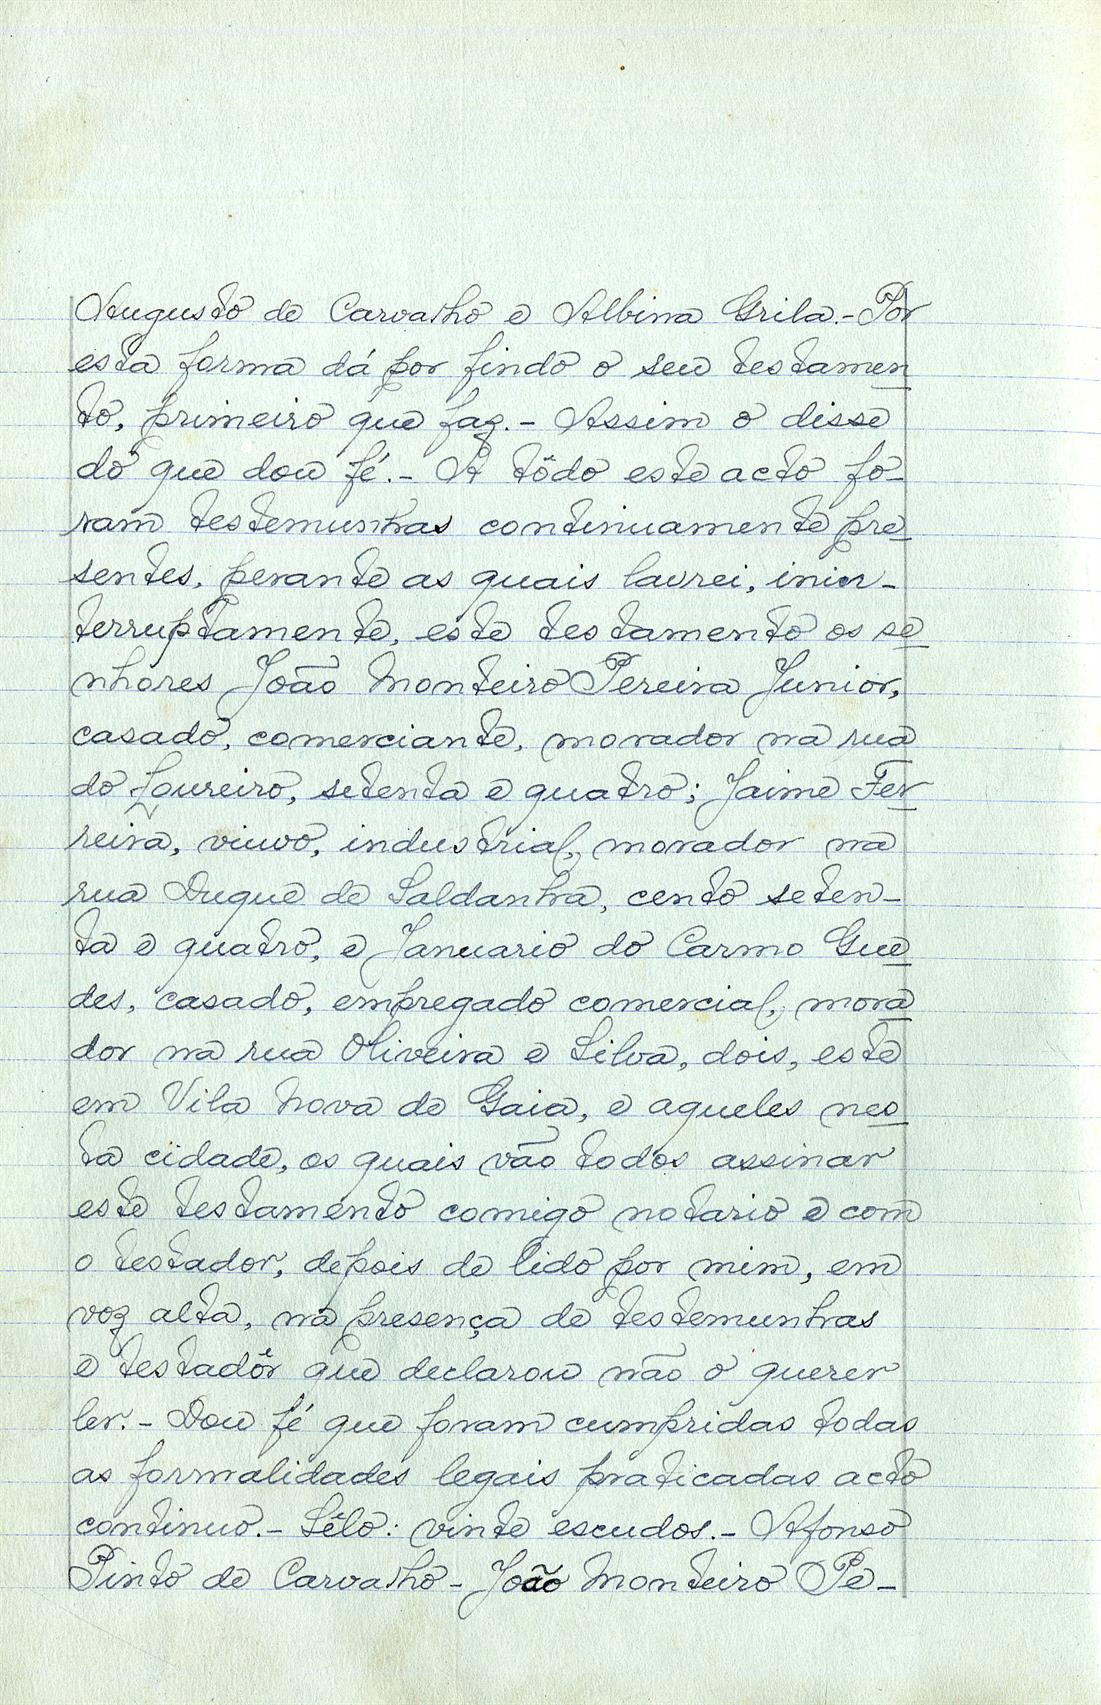 Augusto de Carvalho e Albina Grila.- Por
esta forma dá por findo o seu testamen
to, primeiro que faz.- Assim o disse
do que dou fé.- A tôdo este acto fo-
ram testemunhas continuamente pre
sentes, perante as quais lavrei, inin-
terruptamente, este testamento os se
nhores João Monteiro Pereira Junior,
casado, comerciante, morador na rua
do Loureiro, setenta e quatro; Jaime Fer
reira, viuvo, industrial, morador na
rua Duque de Saldanha, cento seten-
ta e quatro, e Januario do Carmo Gue
des, casado, empregado comercial, mora
dor na rua Oliveira e Silva, dois, este
em Vila Nova de Gaia, e aqueles nes
ta cidade, os quais vão todos assinar
este testamento comigo notario e com
o testador, depois de lido por mim, em
voz alta, na presença de testemunhas
e testadôr que declarou não o querer
ler.- Dou fé que foram cumpridas todas
as formalidades legais praticadas acto
continuo.- Sêlo: vinte escudos.- Afonso
Pinto de Carvalho - João Monteiro Pe-